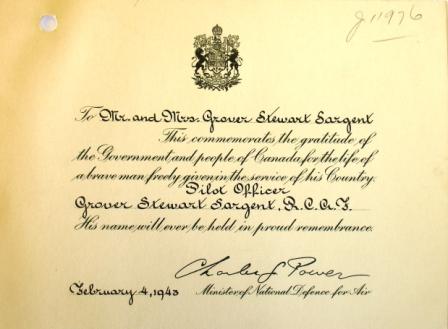 J11976
To Mr. and Mrs. Grover Stewart Sargent
This commemorates the gratitude of
the Government and people of Canada for the life of
a brave man freely given in the service of his Country.
Pilot Officer
Grover Stewart Sargent, R.C.A.F.
His name will ever be held in proud remembrance.
Charles G Power
February 4, 1943 Minister of National Defence for Air